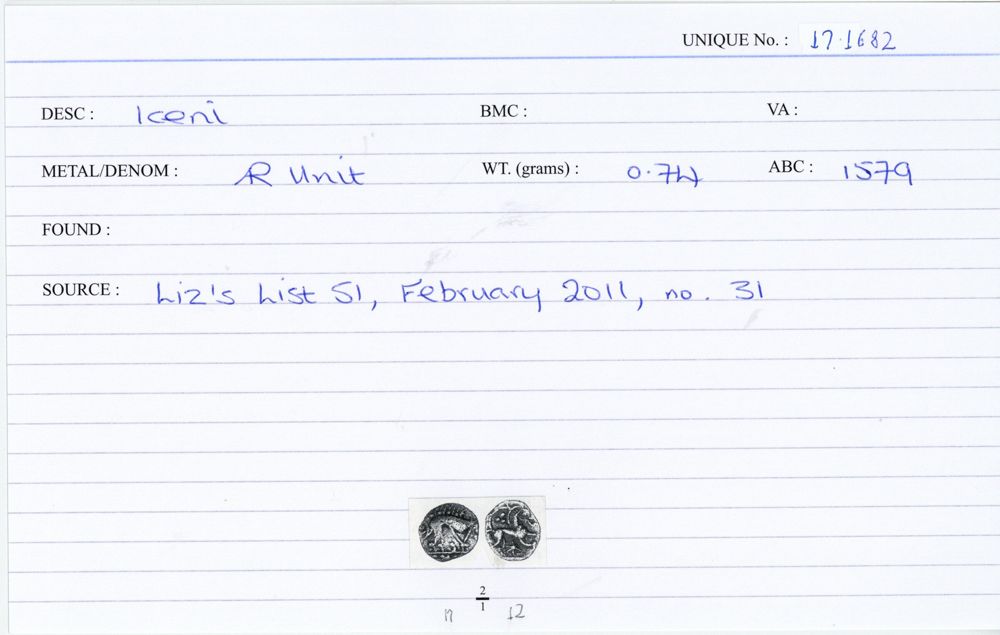 UNIQUE No. : 17.1682
DESC : Iceni BMC : VA :
METAL/DENOM : AR Unit WT. (grams) : 0.74 ABC : 1579
FOUND :
SOURCE : Liz's List 51, February 2011, no. 31
2
1
12